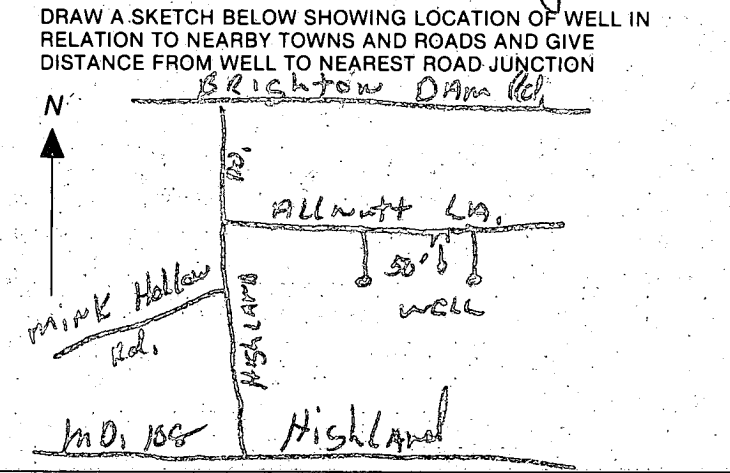 DRAW A SKETCH BELOW SHOWING LOCATION OF WELL IN
RELATION TO NEARBY TOWNS AND ROADS AND GIVE
DISTANCE FROM WELL TO NEAREST ROAD JUNCTION
BRighton DAm Rd.
N
RD.
ALLnutt LN.
50'
WELL
Mink Hollow
Rd.
HighLAND
MD. 108 HighLAnd